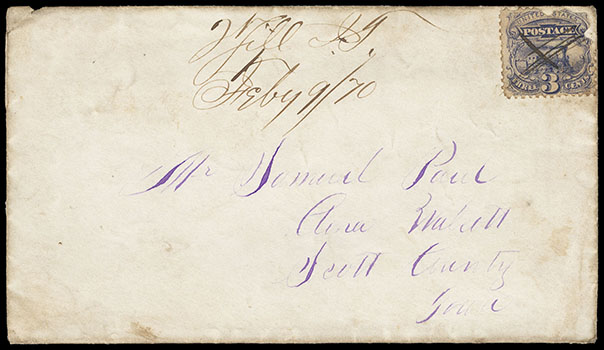 Feby 9/70
UNITED STATES
POSTAGE
THREE 3 CENTS
Mr Samuel Paul
Scott County
Iowa